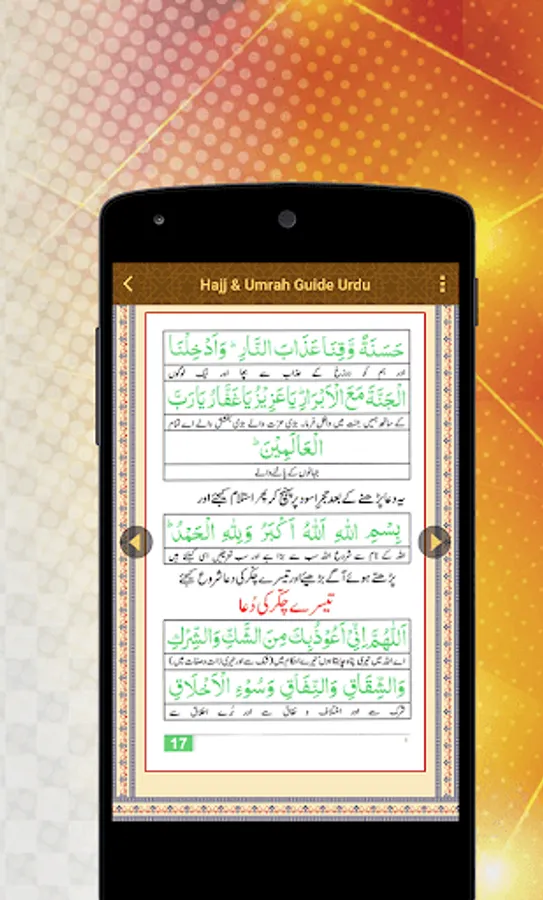 Hajj & Umrah Guide Urdu
حَسَنَةً وَّقِنَا عَذَابَ النَّارِ ؕ وَاَدْخِلْنَا
اور ہم کو دوزخ کے عذاب سے بچا اور نیک لوگوں
الْجَنَّةَ مَعَ الْاَبْرَارِ يَاعَزِيْزُ يَاغَفَّارُ يَارَبَّ
کے ساتھ ہمیں جنت میں داخل فرما۔ بڑی عزت والے بڑی بخشش والے اے تمام
الْعَالَمِيْنَ ؕ
جہانوں کے پالنے والے
یہ دعا پڑھنے کے بعد حجرِ اسود پر پہنچ کر پھر استلام کیجئے اور
بِسْمِ اللهِ اَللهُ اَكْبَرُ وَلِلّٰهِ الْحَمْدُ ؕ
اللہ کے نام سے شروع اللہ سب سے بڑا ہے اور سب تعریفیں اسی کیلئے ہیں
پڑھتے ہوئے آگے بڑھیئے اور تیسرے چکّر کی دعا شروع کیجئے
تیسرے چکّر کی دُعا
اَللّٰهُمَّ اِنِّيْ اَعُوْذُبِكَ مِنَ الشَّكِّ وَالشِّرْكِ
اے اللہ میں تیری پناہ چاہتا ہوں تیرے احکام میں (شک سے اور تیری ذات و صفات میں)
وَالشِّقَاقِ وَالنِّفَاقِ وَسُوْٓءِ الْاَخْلَاقِ
شرک سے اور اختلاف و نفاق سے اور بُرے اخلاق سے
17